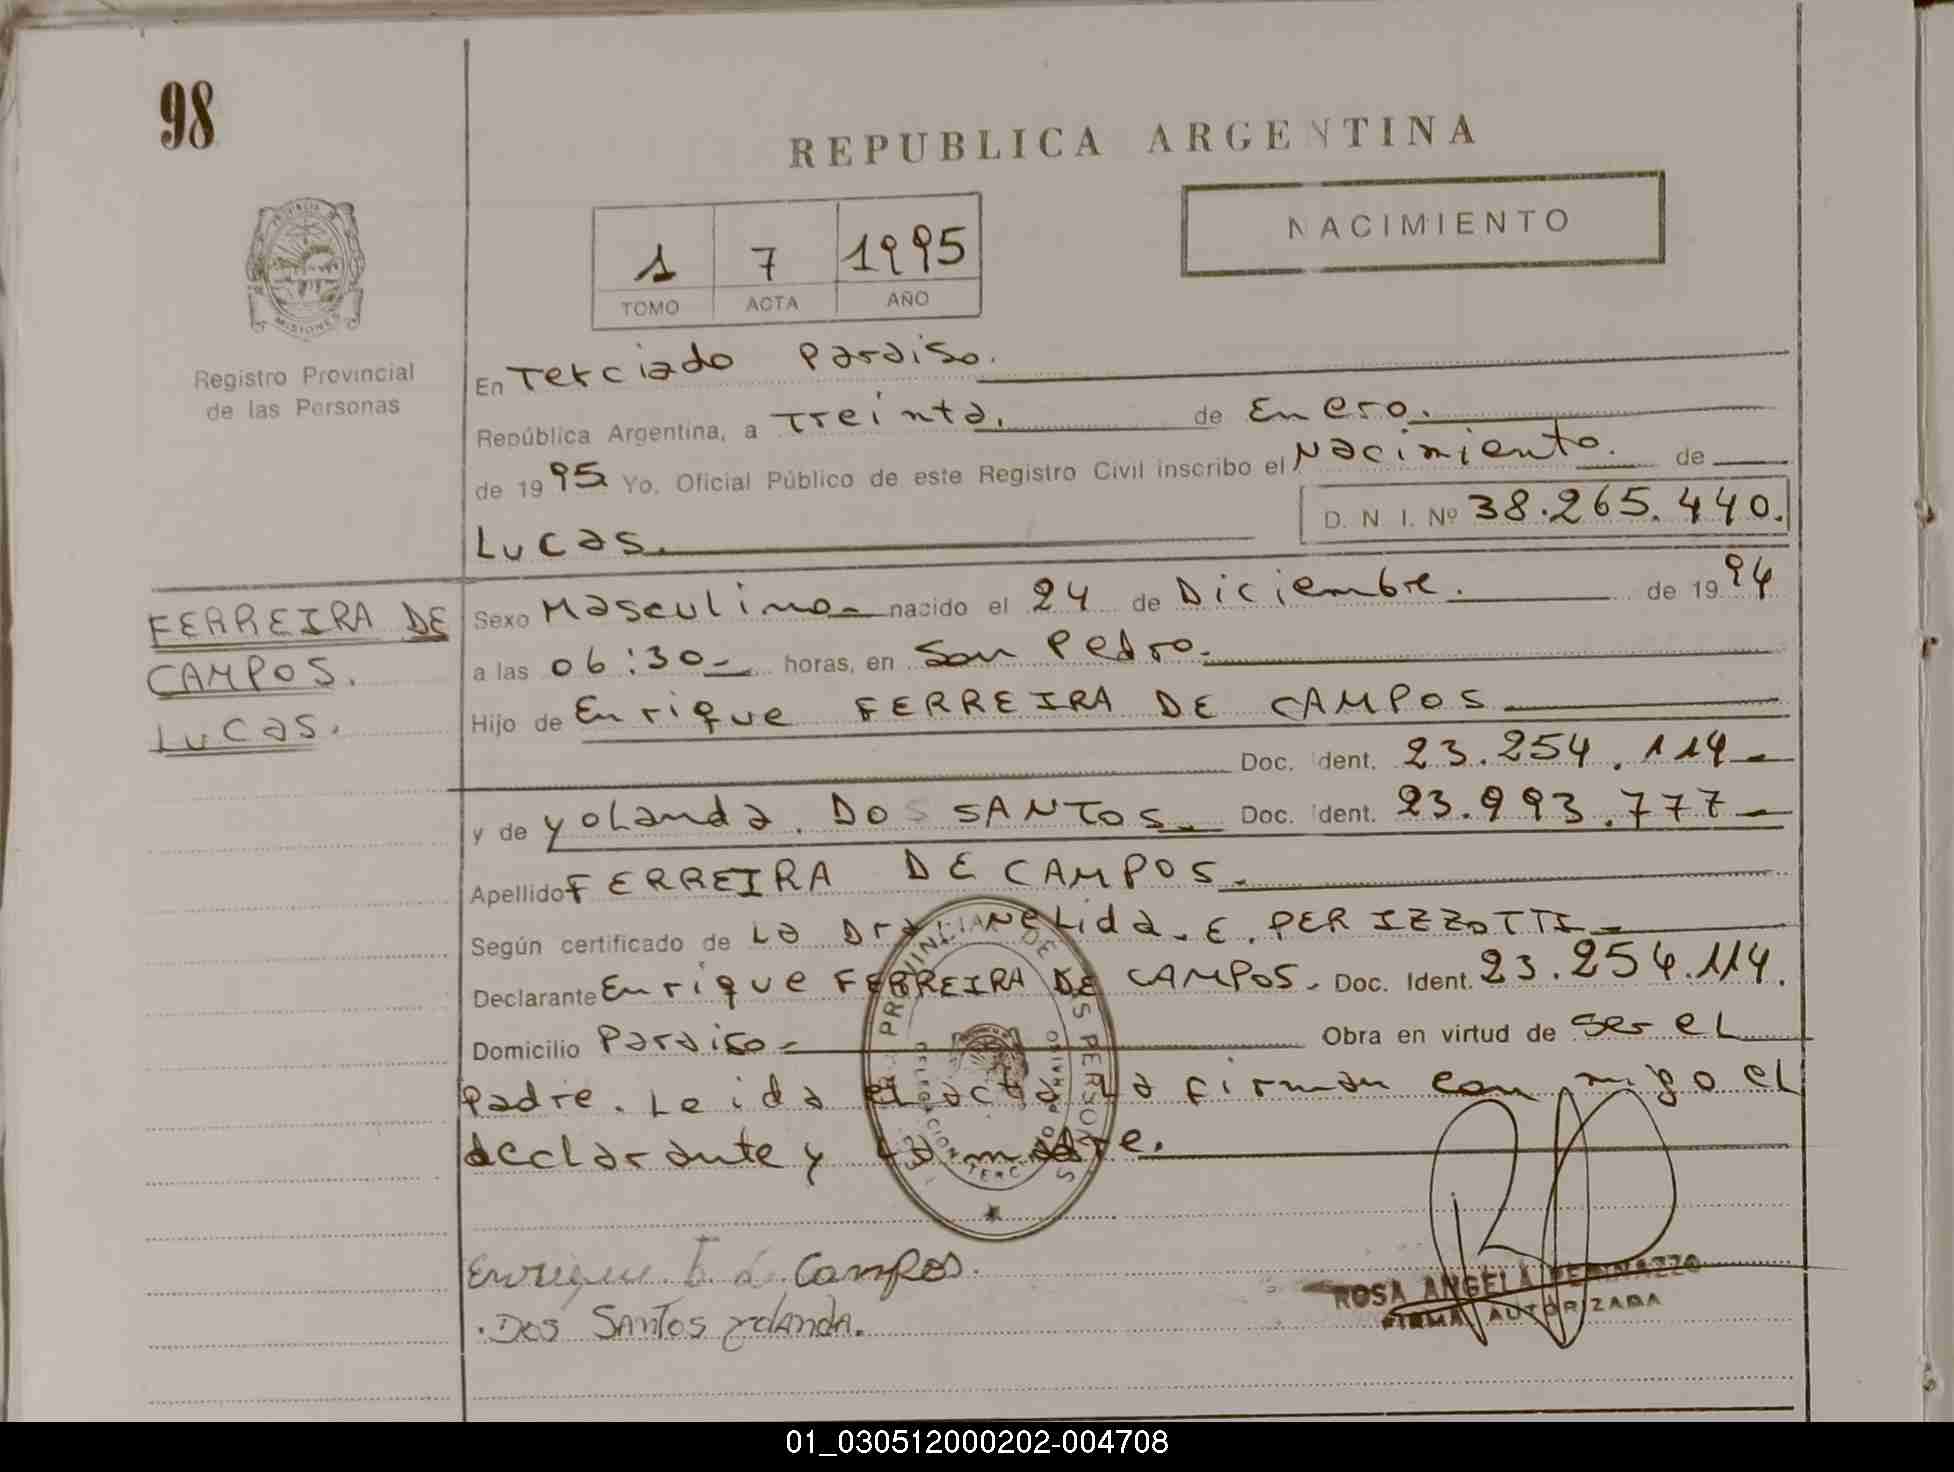 98
REPUBLICA ARGENTINA
NACIMIENTO
1 7 1995
TOMO ACTA AÑO
PROVINCIA DE
MISIONES
Registro Provincial
de las Personas
En Terciado Paraiso.
República Argentina, a Treinta. de Enero.
de 1995 Yo, Oficial Público de este Registro Civil inscribo el Nacimiento. de
D. N. I. Nº 38.265.440.
Lucas.
FERREIRA DE
CAMPOS.
Lucas.
Sexo Masculino nacido el 24 de Diciembre. de 1994
a las 06:30 horas, en San Pedro.
Hijo de Enrique FERREIRA DE CAMPOS
Doc. Ident. 23.254.114
y de Yolanda. DOS SANTOS. Doc. Ident. 23.993.777
Apellido FERREIRA DE CAMPOS.
Según certificado de La Dra. Nelida. E. PERIZZOTTI
Declarante Enrique FERREIRA DE CAMPOS. Doc. Ident. 23.254.114.
Domicilio Paraiso Obra en virtud de ser el
Padre. Leida el acta La firman conmigo el
declarante y La madre.
Enrique F. d. Campos.
Dos Santos Yolanda.
ROSA ANGELA PERINAZZO
FIRMA AUTORIZADA
01_030512000202-004708